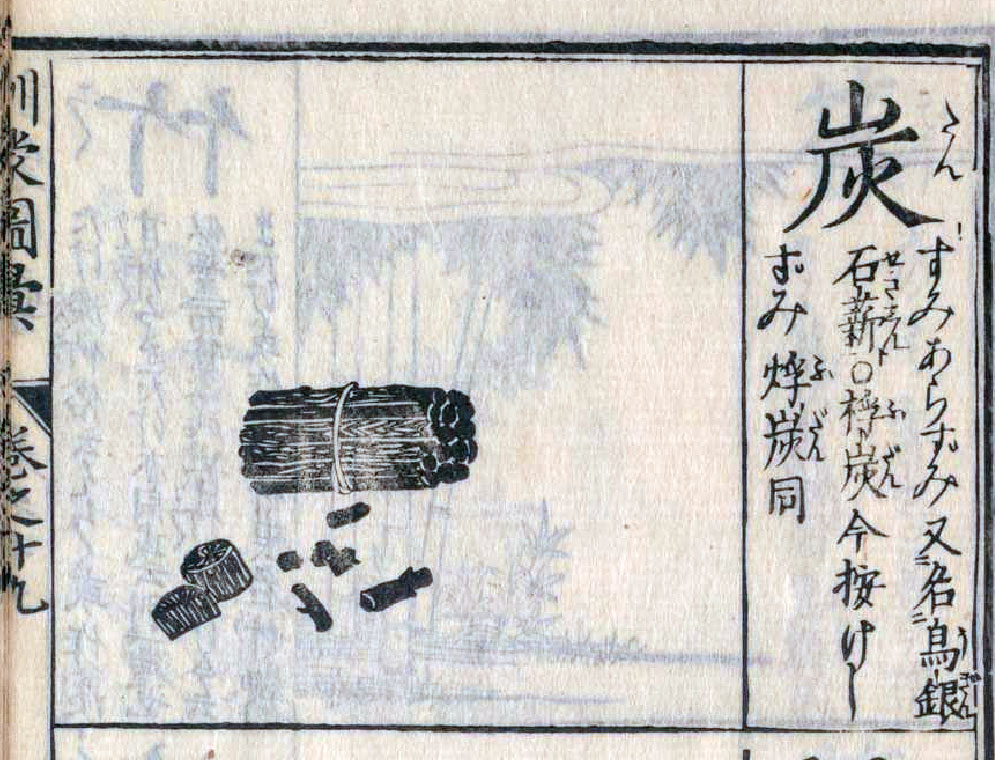 炭
たん
すみあらずみ又名烏銀
うぎん
石薪○桴炭今按けし
せきしん ふだん
ずみ烰炭同
ふだん
訓蒙圖彙
卷之十九